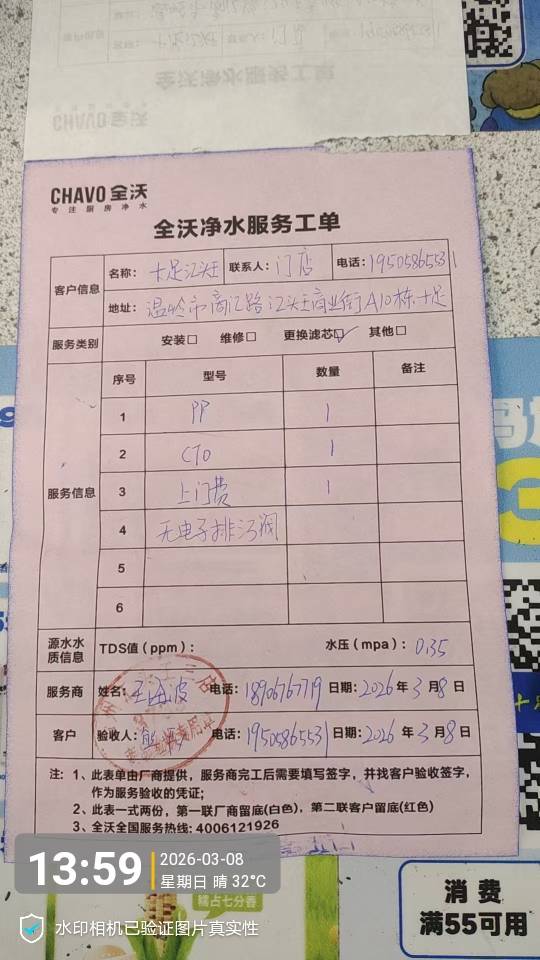 CHAVO 全沃
专注厨房净水
全沃净水服务工单
客户信息
名称: 十足江狂 联系人: 门店 电话: 19505865531
地址: 温岭市商汇路江狂商业街A10栋十足
服务类别 安装□ 维修□ 更换滤芯☑ 其他□
服务信息
序号 型号 数量 备注
1 PP 1
2 CTO 1
3 上门费 1
4 无电子排污阀
5
6
源水水质信息 TDS值(ppm): 水压(mpa): 0.35
服务商 姓名: 电话: 18906767719 日期: 2026年3月8日
客户 验收人: 电话: 19505865531 日期: 2026年3月8日
注: 1、此表单由厂商提供,服务商完工后需要填写签字,并找客户验收签字,
作为服务验收的凭证;
2、此表一式两份,第一联厂商留底(白色),第二联客户留底(红色)
3、全沃全国服务热线: 4006121926
13:59
2026-03-08
星期日 晴 32℃
水印相机已验证图片真实性
糯占七分香
消费
满55可用